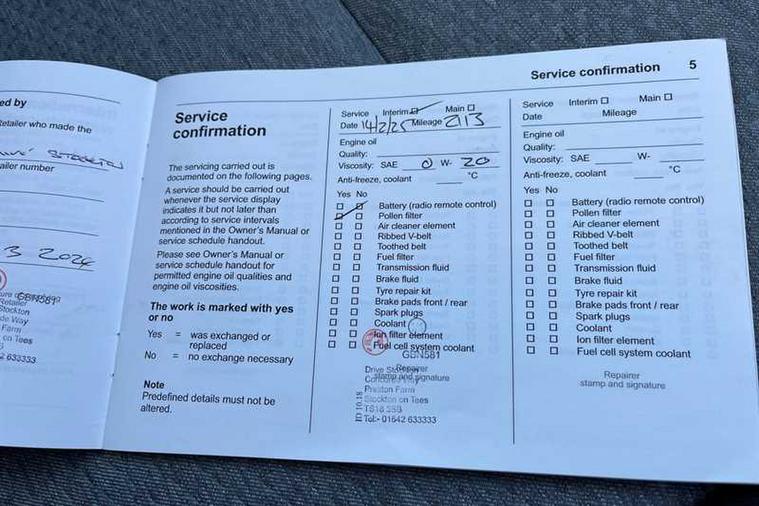 ed by
Retailer who made the
STOCKTON
ailer number
3 2024
GBN581
Retailer
Stockton
de Way
Farm
on Tees
2 633333
Service
confirmation
The servicing carried out is
documented on the following pages.
A service should be carried out
whenever the service display
indicates it but not later than
according to service intervals
mentioned in the Owner's Manual or
service schedule handout.
Please see Owner's Manual or
service schedule handout for
permitted engine oil qualities and
engine oil viscosities.
The work is marked with yes
or no
Yes = was exchanged or
replaced
No = no exchange necessary
Note
Predefined details must not be
altered.
Service confirmation 5
Service Interim Main
Date 14/2/25 Mileage 2113
Engine oil
Quality:
Viscosity: SAE 0 W- 20
Anti-freeze, coolant °C
Yes No
Battery (radio remote control)
Pollen filter
Air cleaner element
Ribbed V-belt
Toothed belt
Fuel filter
Transmission fluid
Brake fluid
Tyre repair kit
Brake pads front / rear
Spark plugs
Coolant
Ion filter element
Fuel cell system coolant
GBN581
Repairer
stamp and signature
Drive Stockton
Concorde Way
Preston Farm
Stockton on Tees
TS18 3SB
Tel:- 01642 633333
ID 10.18
Service Interim Main
Date Mileage
Engine oil
Quality:
Viscosity: SAE W-
Anti-freeze, coolant °C
Yes No
Battery (radio remote control)
Pollen filter
Air cleaner element
Ribbed V-belt
Toothed belt
Fuel filter
Transmission fluid
Brake fluid
Tyre repair kit
Brake pads front / rear
Spark plugs
Coolant
Ion filter element
Fuel cell system coolant
Repairer
stamp and signature